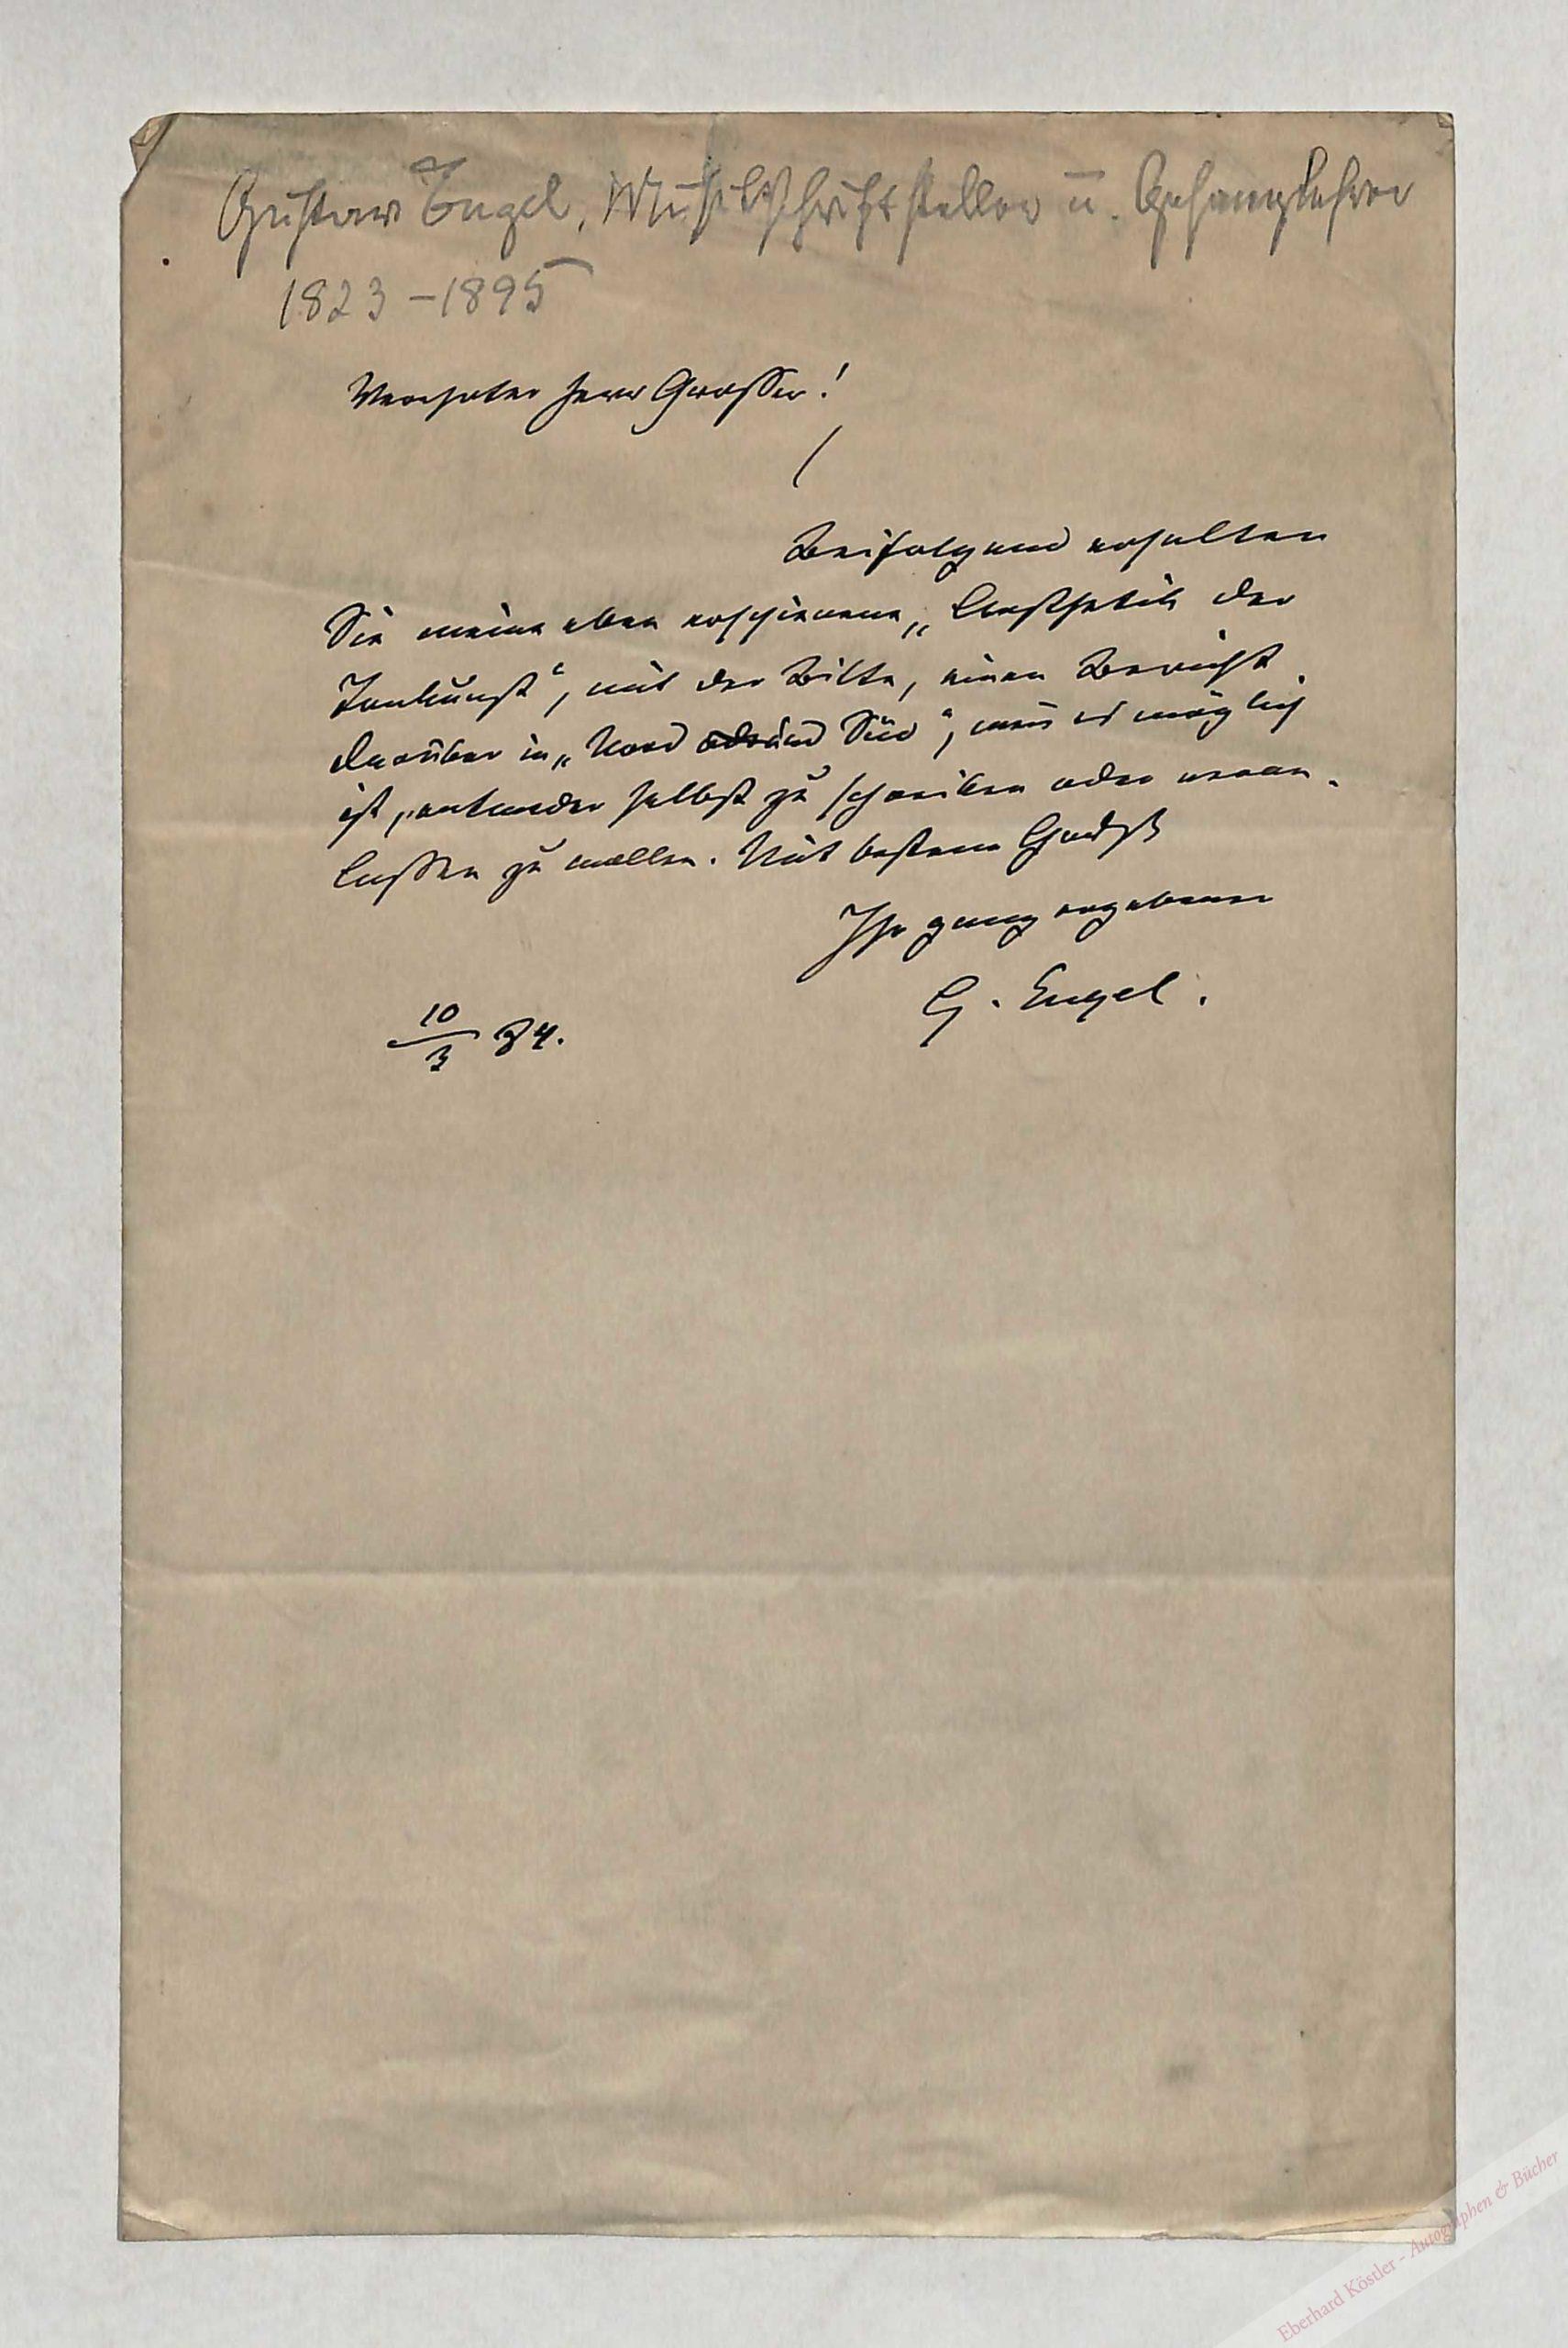 Gustav Engel, Musikschriftsteller u. Gesanglehrer
1823-1895
Verehrter Herr Grosser!
Beifolgend erhalten
Sie meine eben erschienene „Aesthetik der
Tonkunst“, mit der Bitte, einen Bericht
darüber in „Nord und Süd“, wenn es möglich
ist, entweder selbst zu schreiben oder veran-
lassen zu wollen. Mit bestem Gruß
Ihr ganz ergebener
G. Engel.
10/3 84.
Eberhard Köstler - Autographen & Bücher